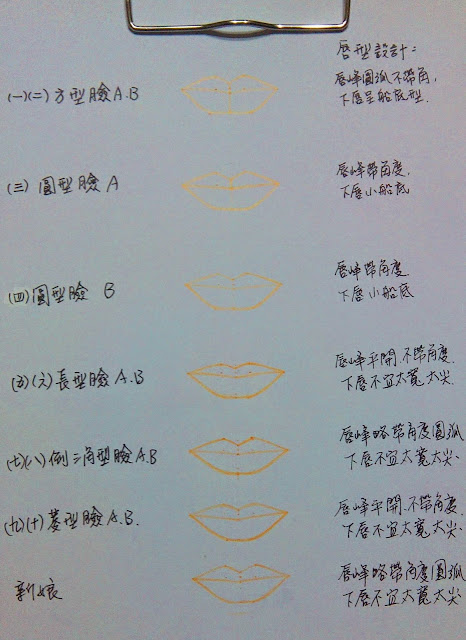 唇型設計：
(一)(二)方型臉A.B
唇峰圓弧不帶角,
下唇呈船底型.
(三) 圓型臉 A
唇峰帶角度.
下唇小船底
(四)圓型臉 B
唇峰帶角度
下唇小船底
(五)(六)長型臉A.B
唇峰平開.不帶角度.
下唇不宜太寬太尖.
(七)(八)例三角型臉A.B
唇峰略帶角度圓弧
下唇不宜太寬太尖.
(九)(十)菱型臉A.B.
唇峰平開.不帶角度.
下唇不宜太寬太尖
新娘
唇峰略帶角度圓弧
下唇不宜太寬太尖.